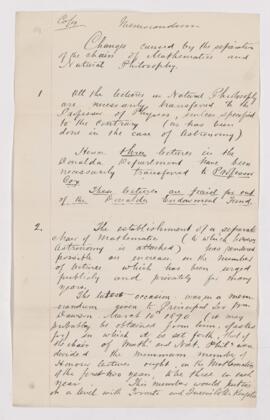 Copy Memorandum
Changes caused by the separation
of the chairs of Mathematics and
Natural Philosophy.
1 All the lectures in Natural Philosophy
are necessarily transferred to the
Professor of Physics, unless specified
to the contrary (as has been
done in the case of Astronomy)
Hence three lectures in the
Donalda Department have been
necessarily transferred to Professor
Cox.
These lectures are paid for out
of the Donalda Endowment Fund.
2. The establishment of a separate
chair of Mathematics (to which however
Astronomy is attached) has rendered
possible an increase in the number
of lectures which has been urged
publicly and privately for many
years.
The latest occasion was in a mem-
orandum given to Principal Sir Wm
Dawson March 10th 1890 (it may
probably be obtained from him,
for) in which it is set forth that if
the chairs of Math and Nat. Phil. were
divided the minimum number of
Honour lectures ought in the Mathematics
of the first two years to be three in each
year. This number would put us
on a level with Toronto and